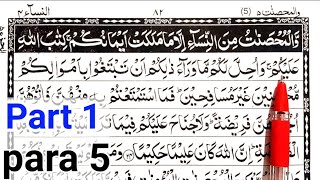 والمحصنت ٥ (5) ٨٢ النسآء ٤
وَّالْمُحْصَنٰتُ مِنَ النِّسَآءِ اِلَّا مَا مَلَكَتْ اَيْمَانُكُمْ كِتٰبَ اللّٰهِ
عَلَيْكُمْ وَاُحِلَّ لَكُمْ مَّا وَرَآءَ ذٰلِكُمْ اَنْ تَبْتَغُوْا بِاَمْوَالِكُمْ
غَيْرَ مُسٰفِحِيْنَ فَمَا اسْتَمْتَعْتُمْ بِهٖ مِنْهُنَّ فَاٰتُوْهُنَّ
Part 1
فَرِيْضَةً وَلَا جُنَاحَ عَلَيْكُمْ فِيْمَا
para 5
اِنَّ اللّٰهَ كَانَ عَلِيْمًا حَكِيْمًا